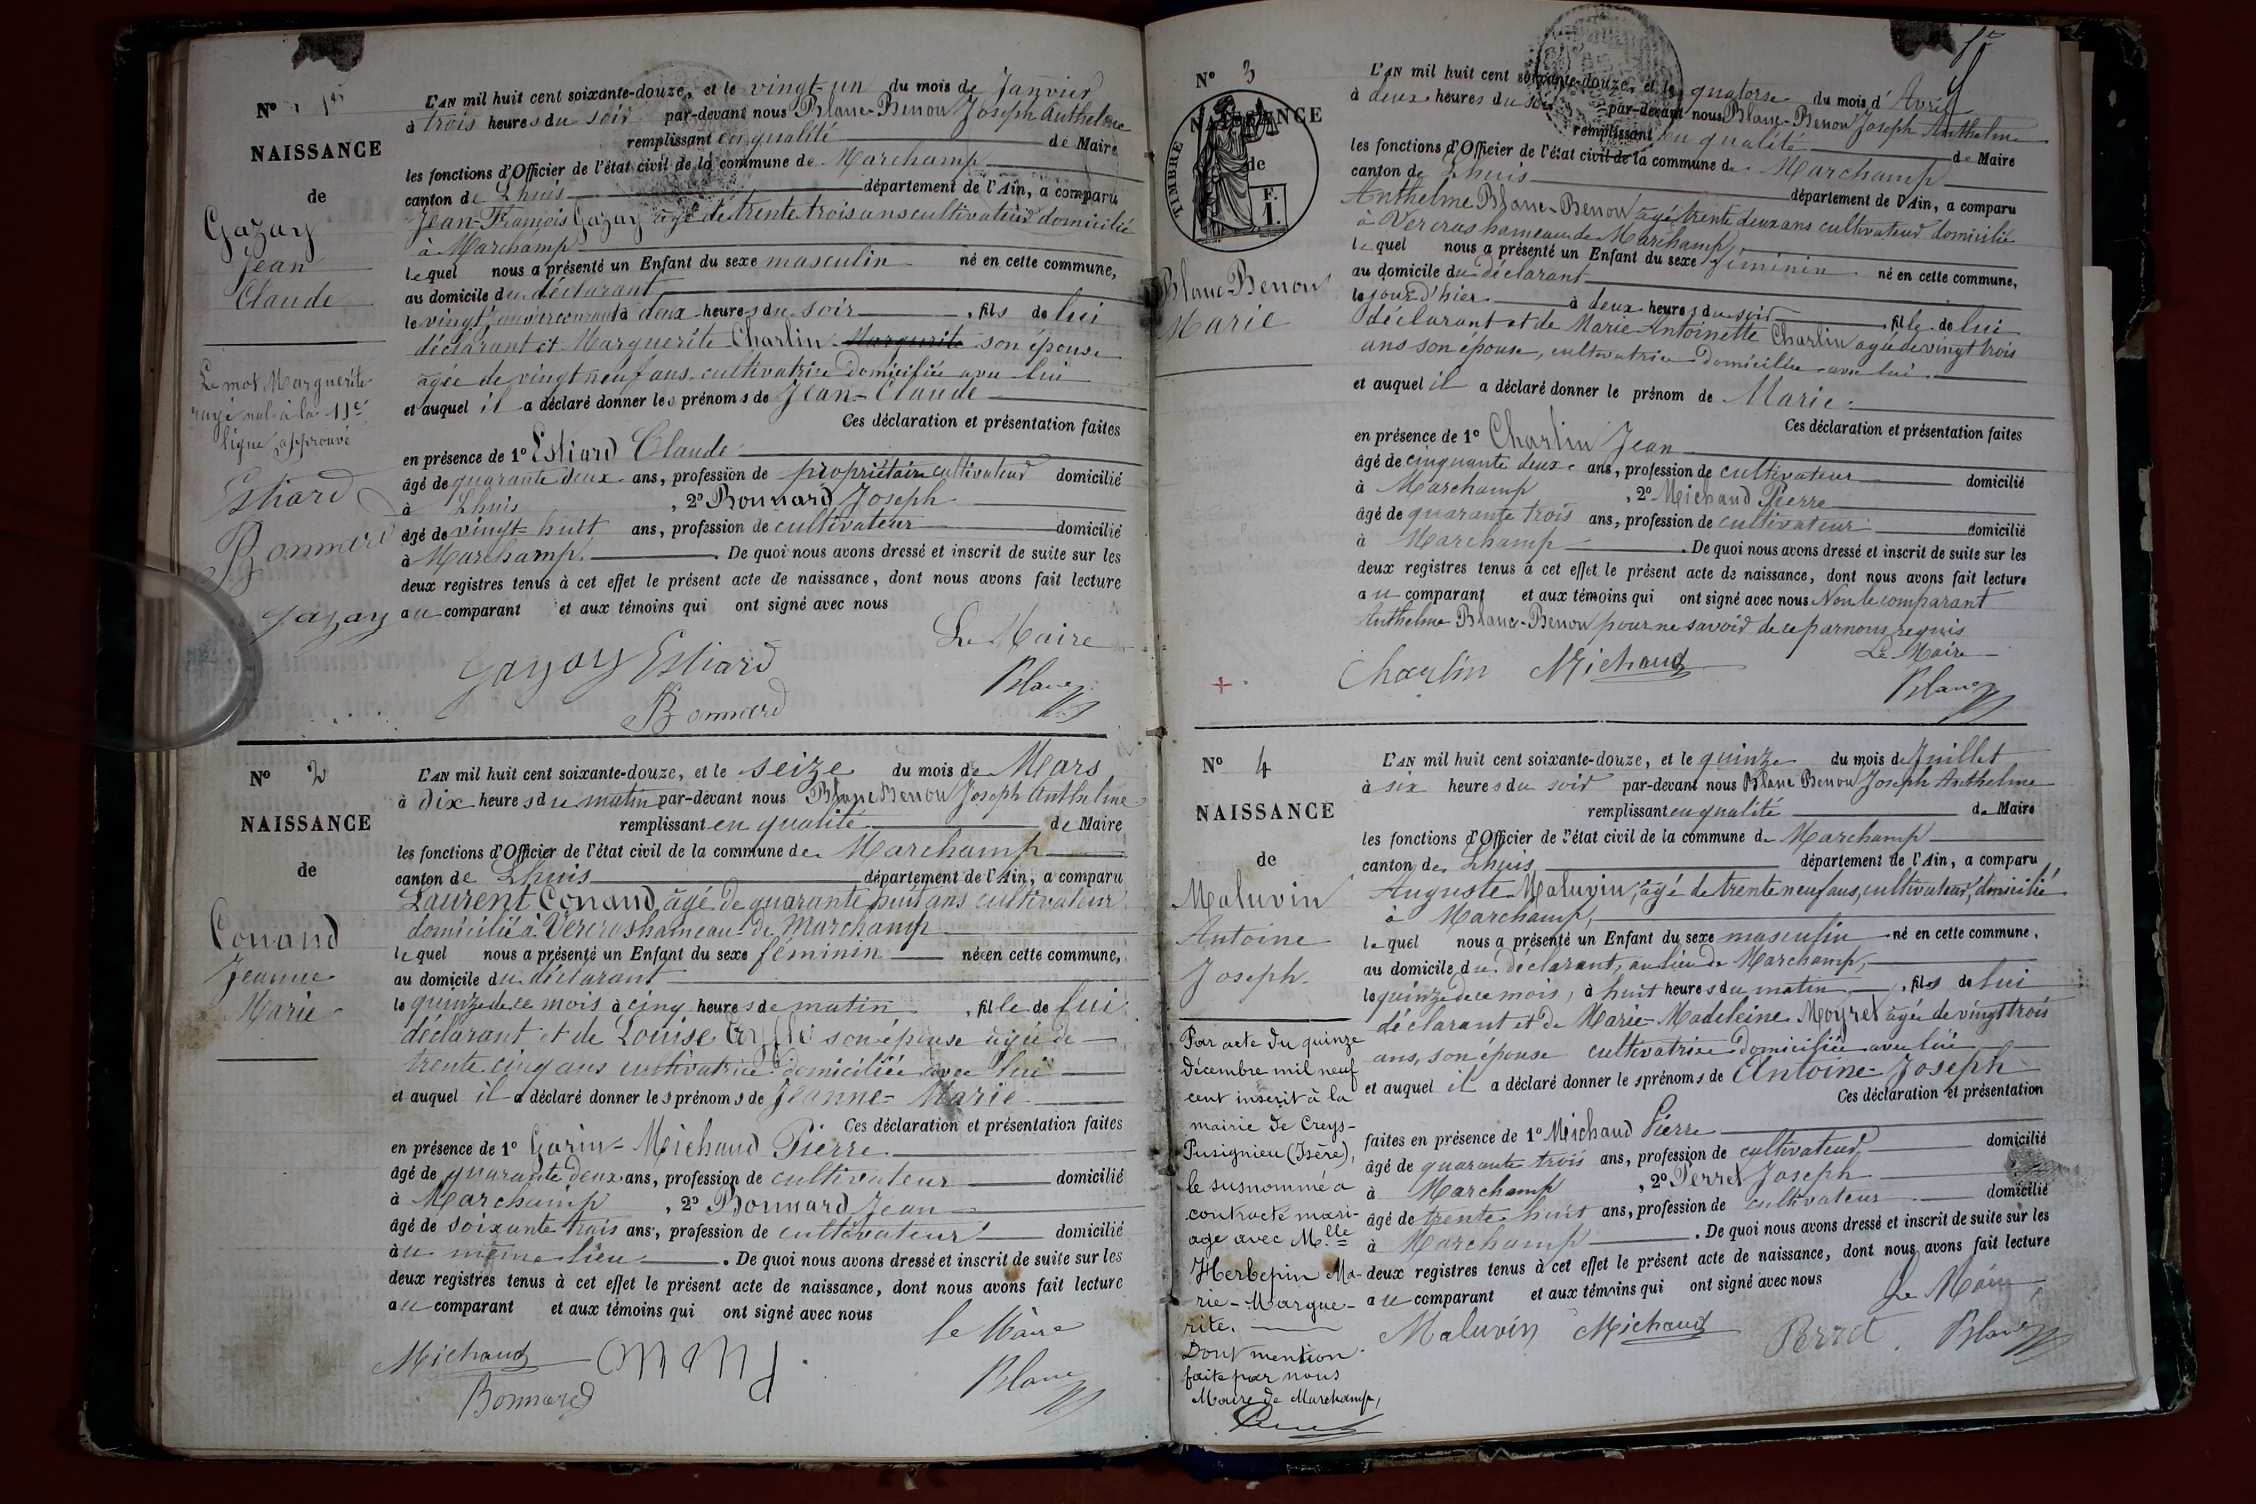 N° 1er
NAISSANCE
de
Gazay
Jean
Claude
Le mot Marguerite
rayé nul à la 11e
ligne approuvé
Estiard
Bonnard
Gazay
L'AN mil huit cent soixante-douze, et le vingt-un du mois de Janvier
à trois heures du soir par-devant nous Blanc-Benon Joseph Anthelme
remplissant en qualité de Maire
les fonctions d'Officier de l'état civil de la commune de Marchamp
canton de Lhuis département de l'Ain, a comparu
Jean-François Gazay âgé de trente trois ans cultivateur domicilié
à Marchamp
lequel nous a présenté un Enfant du sexe masculin né en cette commune,
au domicile du déclarant
le vingt un courant à deux heures du soir , fils de lui
déclarant et Marguerite Charlin Marguerite son épouse
âgée de vingt neuf ans, cultivatrice domiciliée avec lui
et auquel il a déclaré donner les prénoms de Jean-Claude
Ces déclaration et présentation faites
en présence de 1° Estiard Claude
âgé de quarante deux ans, profession de propriétaire cultivateur domicilié
à Lhuis , 2° Bonnard Joseph
âgé de vingt-huit ans, profession de cultivateur domicilié
à Marchamp. De quoi nous avons dressé et inscrit de suite sur les
deux registres tenus à cet effet le présent acte de naissance, dont nous avons fait lecture
au comparant et aux témoins qui ont signé avec nous
Le Maire
Gazay Estiard
Blanc
Bonnard
N° 2
NAISSANCE
de
Conand
Jeanne
Marie
L'AN mil huit cent soixante-douze, et le seize du mois de Mars
à dix heures du matin par-devant nous Blanc Benon Joseph Anthelme
remplissant en qualité de Maire
les fonctions d'Officier de l'état civil de la commune de Marchamp
canton de Lhuis département de l'Ain, a comparu
Laurent Conand, âgé de quarante huit ans cultivateur
domicilié à Vercras hameau de Marchamp
lequel nous a présenté un Enfant du sexe féminin né en cette commune,
au domicile du déclarant
le quinze de ce mois à cinq heures de matin , fille de lui
déclarant et de Louise son épouse âgée de
trente cinq ans cultivatrice domiciliée avec lui
et auquel il a déclaré donner les prénoms de Jeanne-Marie
Ces déclaration et présentation faites
en présence de 1° Garin-Michaud Pierre
âgé de quarante deux ans, profession de cultivateur domicilié
à Marchamp , 2° Bonnard Jean
âgé de soixante trois ans, profession de cultivateur domicilié
au même lieu . De quoi nous avons dressé et inscrit de suite sur les
deux registres tenus à cet effet le présent acte de naissance, dont nous avons fait lecture
au comparant et aux témoins qui ont signé avec nous
le Maire
Michaud
Blanc
Bonnard
N° 3
NAISSANCE
de
TIMBRE
F.
1.
Blanc-Benon
Marie
L'AN mil huit cent soixante-douze, et le quatorse du mois d'Avril
à deux heures du soir par-devant nous Blanc-Benon Joseph Anthelme
remplissant en qualité de Maire
les fonctions d'Officier de l'état civil de la commune de Marchamp
canton de Lhuis département de l'Ain, a comparu
Anthelme Blanc-Benon âgé trente deux ans cultivateur domicilié
à Vercras hameau de Marchamp
lequel nous a présenté un Enfant du sexe féminin né en cette commune,
au domicile du déclarant
le jour d'hier à deux heures du soir , fille de lui
déclarant et de Marie-Antoinette Charlin âgée de vingt trois
ans son épouse, cultivatrice domiciliée avec lui
et auquel il a déclaré donner le prénom de Marie
Ces déclaration et présentation faites
en présence de 1° Charlin Jean
âgé de cinquante deux ans, profession de cultivateur domicilié
à Marchamp , 2° Michaud Pierre
âgé de quarante trois ans, profession de cultivateur domicilié
à Marchamp . De quoi nous avons dressé et inscrit de suite sur les
deux registres tenus à cet effet le présent acte de naissance, dont nous avons fait lecture
au comparant et aux témoins qui ont signé avec nous Non le comparant
Anthelme Blanc-Benon pour ne savoir de ce par nous requis
Le Maire
Charlin Michaud
Blanc
N° 4
NAISSANCE
de
Maluvin
Antoine
Joseph
Par acte du quinze
décembre mil neuf
cent inscrit à la
mairie de Creys-
Pusignieu (Isère),
le susnommé a
contracté mari-
age avec Mlle
Herbepin Ma-
rie-Margue-
rite.
Dont mention
faite par nous
Maire de Marchamp,
L'AN mil huit cent soixante-douze, et le quinze du mois de Juillet
à six heures du soir par-devant nous Blanc Benon Joseph Anthelme
remplissant en qualité de Maire
les fonctions d'Officier de l'état civil de la commune de Marchamp
canton de Lhuis département de l'Ain, a comparu
Auguste Maluvin, âgé de trente neuf ans, cultivateur, domicilié
à Marchamp,
lequel nous a présenté un Enfant du sexe masculin né en cette commune,
au domicile du déclarant, au lieu de Marchamp,
le quinze de ce mois, à huit heures du matin , fils de lui
déclarant et de Marie-Madeleine Moyret âgée de vingt trois
ans, son épouse cultivatrice domiciliée avec lui
et auquel il a déclaré donner les prénoms de Antoine-Joseph
Ces déclaration et présentation
faites en présence de 1° Michaud Pierre
âgé de quarante trois ans, profession de cultivateur domicilié
à Marchamp , 2° Perret Joseph
âgé de trente huit ans, profession de cultivateur domicilié
à Marchamp . De quoi nous avons dressé et inscrit de suite sur les
deux registres tenus à cet effet le présent acte de naissance, dont nous avons fait lecture
au comparant et aux témoins qui ont signé avec nous
Le Maire
Maluvin Michaud Perret Blanc